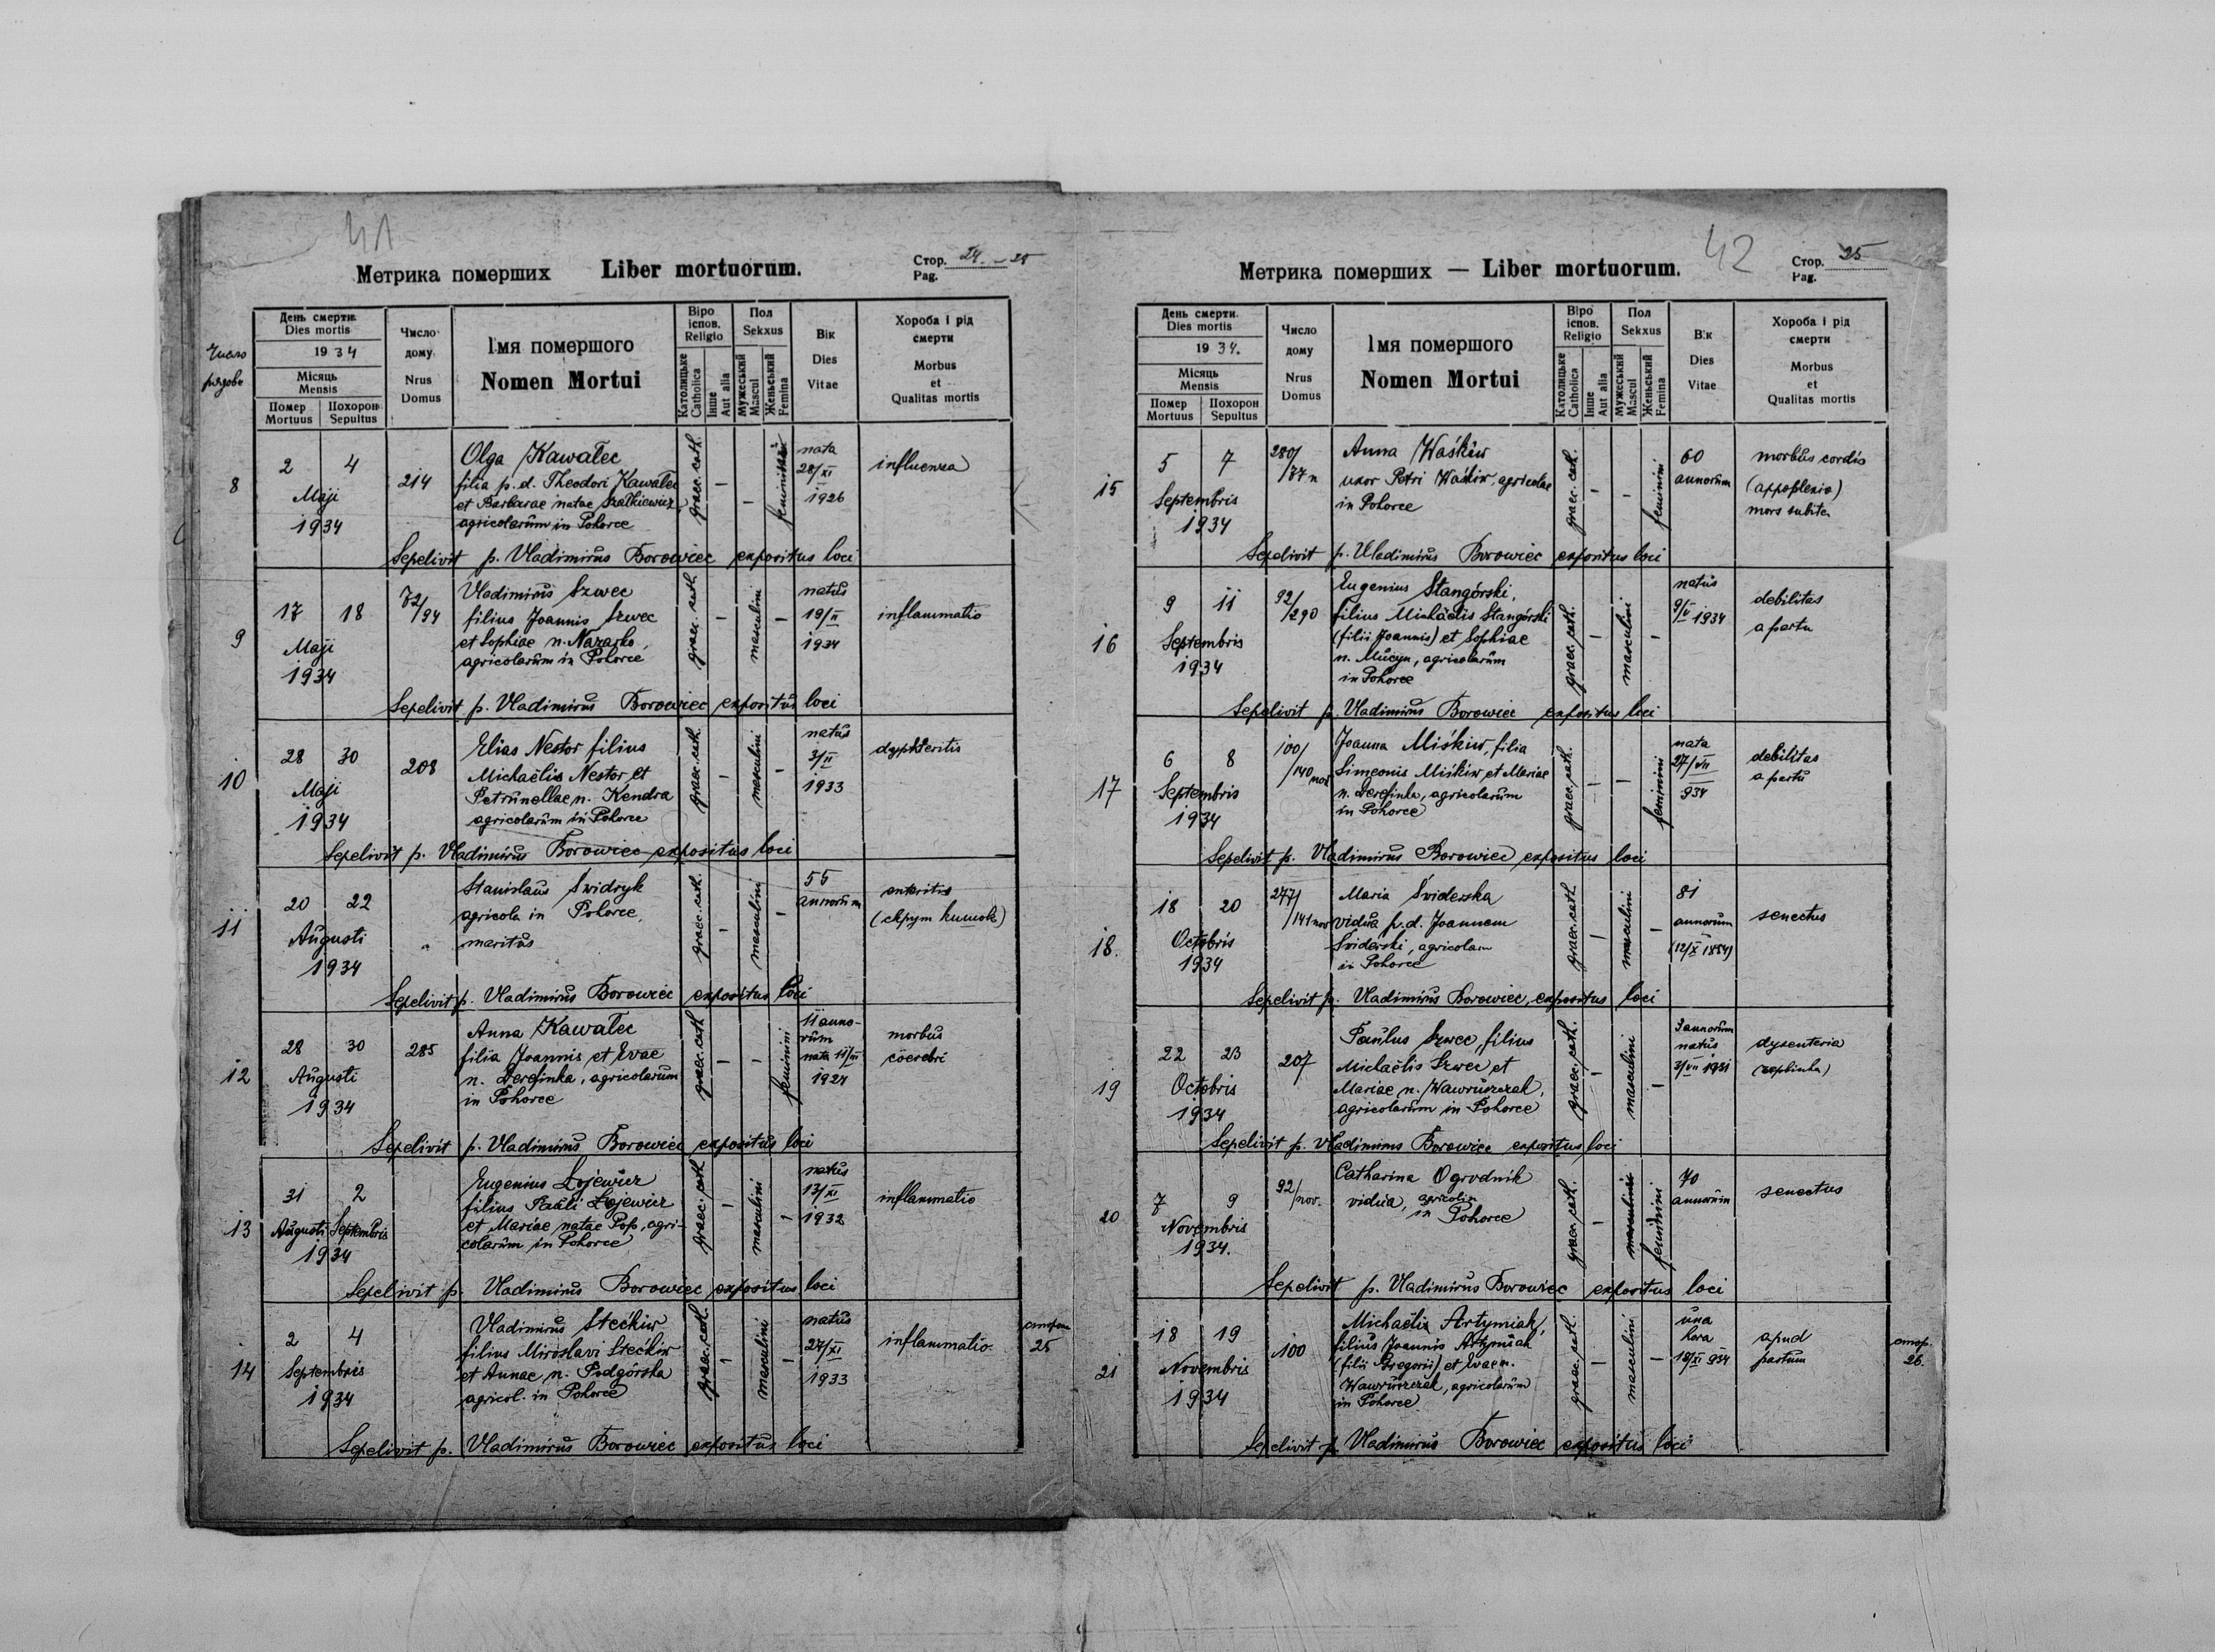 41
Метрика померших Liber mortuorum.
Стор. 24. - 25
Pag.
Число рядове
День смерти.
Dies mortis
1934
Місяць
Mensis
Помер
Mortuus
Похорон
Sepultus
Число
дому
Nrus
Domus
Імя помершого
Nomen Mortui
Віро
ісnов.
Religio
Католицьке
Catholica
Інше
Aut alia
Пол
Sekxus
Мужеський
Mascul
Женьський
Femina
Вік
Dies
Vitae
Хороба і рід
смерти
Morbus
et
Qualitas mortis
8
2 4
Maji
1934
214
Olga Kawałec
filia p. d. Theodori Kawałec
et Barbarae natae
agricolarum in Pohorce
graec. cath.
-
-
feminini
nata
28/XI
1926
influenza
Sepelivit p. Vladimirus Borowiec expositus loci
9
17 18
Maji
1934
72/94
Vladimirus Szwec
filius Joannis Szwec
et Sophiae n. Nazarko,
agricolarum in Pohorce
graec. cath.
-
masculini
-
natus
19/II
1934
inflammatio
Sepelivit p. Vladimirus Borowiec expositus loci
10
28 30
Maji
1934
208
Elias Nestor filius
Michaëlis Nestor et
Petrunellae n. Kendra
agricolarum in Pohorce
graec. cath.
-
masculini
-
natus
3/II
1933
dyphteritis
Sepelivit p. Vladimirus Borowiec expositus loci
11
20 22
Augusti
1934
"
Stanislaus Świdryk
agricola in Pohorce,
maritus
graec. cath.
-
masculini
-
55
annorum
enteritis
(скрут кишок)
Sepelivit p. Vladimirus Borowiec expositus loci
12
28 30
Augusti
1934
285
Anna Kawałec
filia Joannis et Evae
n. Derefinka, agricolarum
in Pohorce
graec. cath.
-
-
feminini
11 anno-
rum
nata
morbus
Sepelivit p. Vladimirus Borowiec expositus loci
13
31 2
Augusti Septembris
1934
Eugenius Łojewicz
filius Pauli Łojewicz
et Mariae natae Pop, agri-
colarum in Pohorce
graec. cath.
-
masculini
-
natus
13/XI
1932
inflammatio
Sepelivit p. Vladimirus Borowiec expositus loci
14
2 4
Septembris
1934
Vladimirus Stećkiw
filius Miroslavi Stećkiw
et Annae n. Podgórska
agricol. in Pohorce
graec. cath.
-
masculini
-
natus
27/XI
1933
inflammatio.
25
Sepelivit p. Vladimirus Borowiec expositus loci
42
Метрика померших — Liber mortuorum.
Стор. 25
Pag.
День смерти.
Dies mortis
1934.
Місяць
Mensis
Помер
Mortuus
Похорон
Sepultus
Число
дому
Nrus
Domus
Імя помершого
Nomen Mortui
Віро
ісnов.
Religio
Католицьке
Catholica
Інше
Aut alia
Пол
Sekxus
Мужеський
Mascul
Женьський
Femina
Вік
Dies
Vitae
Хороба і рід
смерти
Morbus
et
Qualitas mortis
15
5 7
Septembris
1934
280/77 n
Anna Waśkiw
uxor Petri Waśkiw, agricolae
in Pohorce
graec. cath.
-
-
feminini
60
annorum
morbus cordis
(appoplexio)
mors subita
Sepelivit p. Vladimirus Borowiec expositus loci
16
9 11
Septembris
1934
92/290
Eugenius Stangórski,
filius Michaëlis Stangórski
(filii Joannis) et Sophiae
n. Mucyn, agricolarum
in Pohorce
graec. cath.
-
masculini
-
natus
9/V 1934
debilitas
a partu
Sepelivit p. Vladimirus Borowiec expositus loci
17
6 8
Septembris
1934
100/140 nov
Joanna Miśkiw, filia
Simeonis Miśkiw, et Mariae
n. Derefinka, agricolarum
in Pohorce
graec. cath.
-
-
feminini
nata
27/VII
934
debilitas
a partu
Sepelivit p. Vladimirus Borowiec expositus loci
18.
18 20
Octobris
1934
277/141 nov
Maria Świderska
vidua p. d. Joannem
Świderski, agricolam
in Pohorce
graec. cath
-
masculini
-
81
annorum
senectus
Sepelivit p. Vladimirus Borowiec, expositus loci
19
22 23
Octobris
1934
207
Paulus Szwec, filius
Michaëlis Szwec et
Mariae n. Wawruszczak,
agricolarum in Pohorce
graec. cath.
-
masculini
-
3 annorum
natus
3/VII 1931
dysenteria
Sepelivit p. Vladimirus Borowiec expositus loci
20
7 9
Novembris
1934.
92/nov.
Catharina Ogrodnik
vidua, agricolin
in Pohorce
graec. cath.
-
masculini
feminini
70
annorum
senectus
Sepelivit p. Vladimirus Borowiec expositus loci
21
18 19
Novembris
1934
100
Michaëlis Artymiak,
filius Joannis Artymiak
(filii Gregorii) et Evae n.
Wawruszczak, agricolarum
in Pohorce
graec. cath.
-
masculini
-
una
hora
18/XI 934
apud
partum
26.
Sepelivit p. Vladimirus Borowiec expositus loci